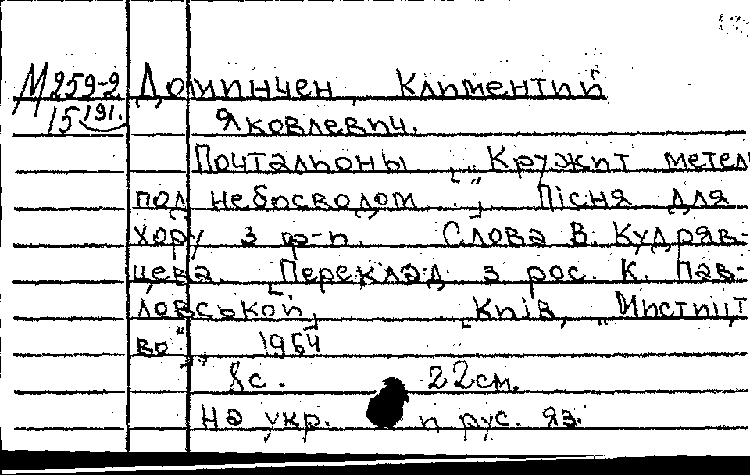 М 259-2 Доминчен, Климентий
15 191. Яковлевич.
Почтальоны „Кружит метель
под небосводом...„ Пісня для
хору з ф-п. Слова В. Кудряв-
цева. [Переклад з рос. К. Пав-
ловської] „Київ, „Мистецт
во", 1964
8с. 22см.
На укр. и рус. яз.